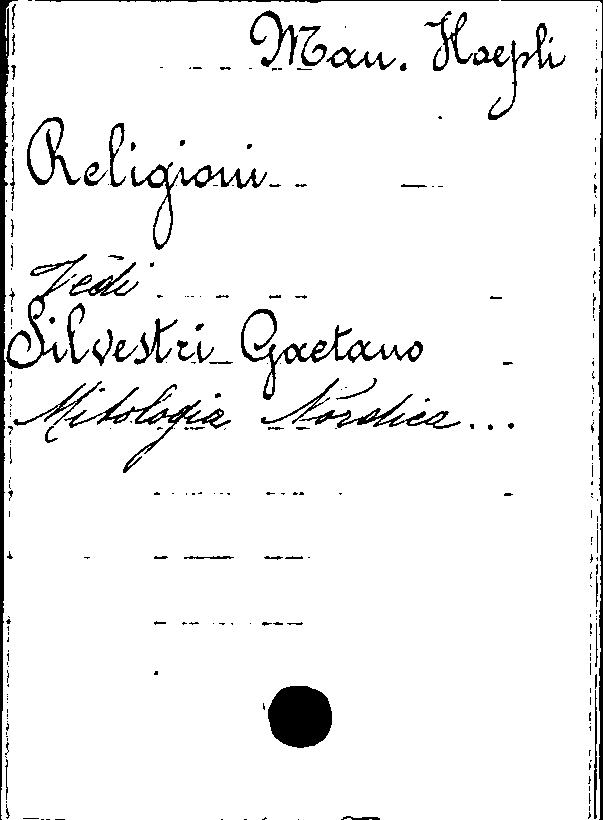 Man. Hoepli
Religioni
Vedi
Silvestri Gaetano
Mitologia Nordica...